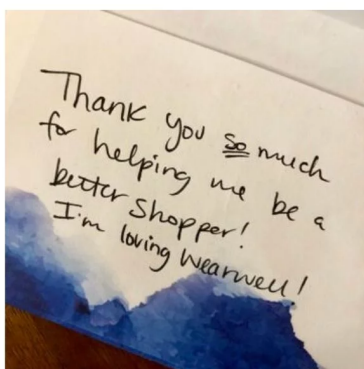 Thank you so much
for helping me be a
better shopper!
I'm loving Wearwell!